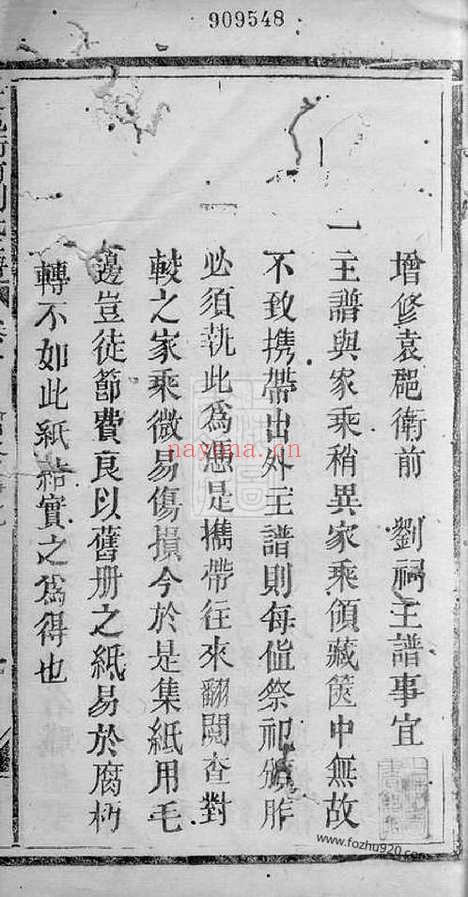 909548
增修袁郡衛前 劉祠主譜事宜
一主譜與家乘稍異家乘領藏篋中無故
不致攜帶出外主譜則每值祭祀頒胙
必須執此為憑是攜帶往來翻閱查對
較之家乘微易傷損今於是集紙用毛
邊豈徒節費良以舊册之紙易於腐朽
轉不如此紙結實之為得也
nayuna.cn
www.fozhu920.com